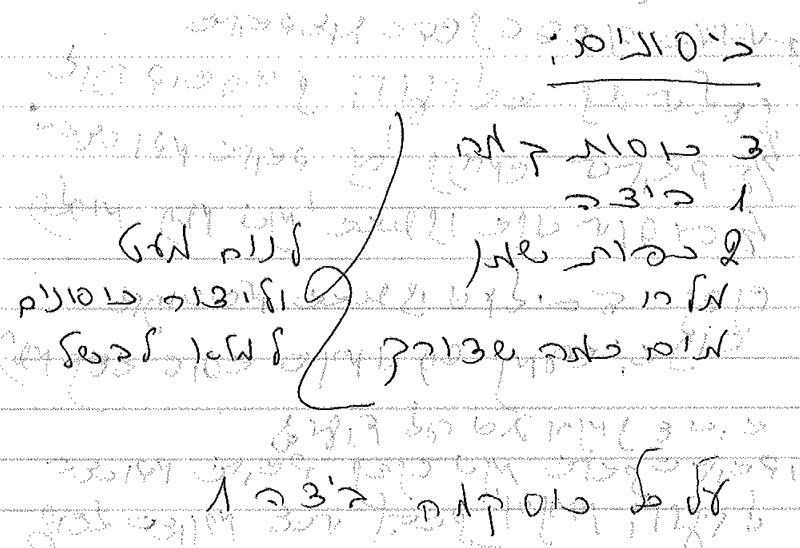 כיסונים:
3 כוסות קמח
1 ביצה
2 כפות שמן
מלח
מים כמה שצורך
לנוח מעט
וליצור כיסונים
למלא לבשל
על כל כוס קמח ביצה 1